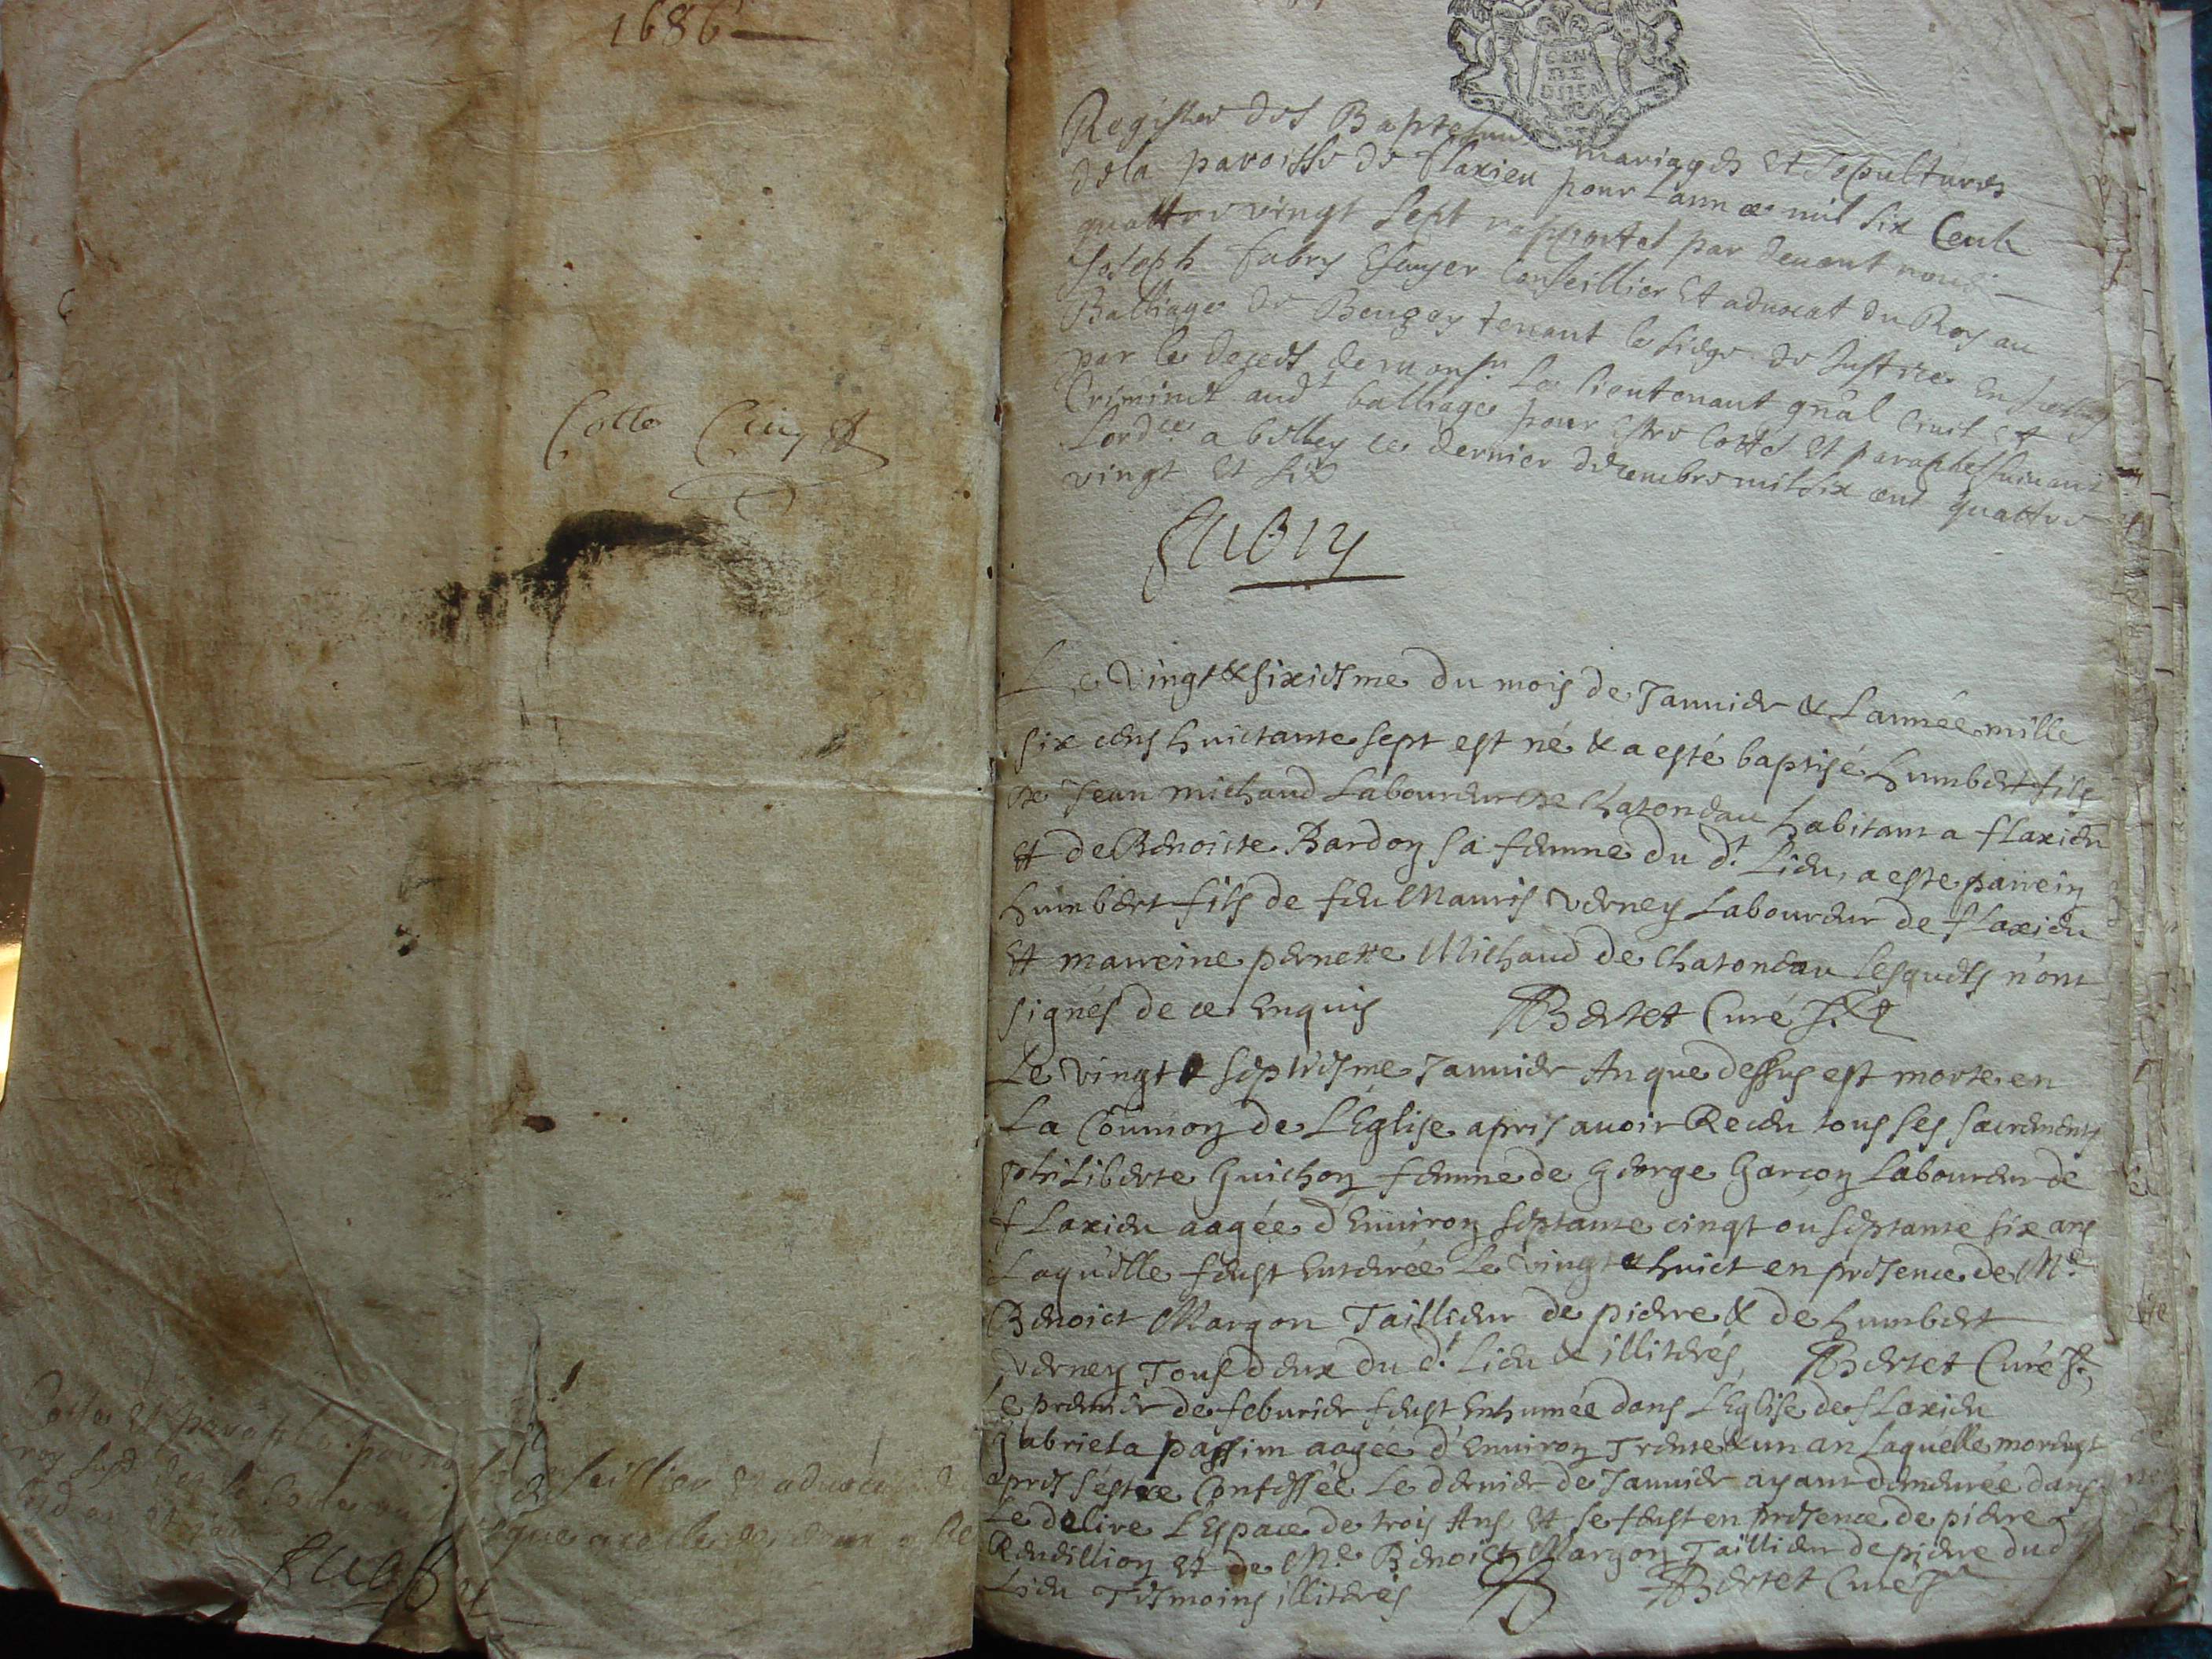 1686
Cotte Cinq
Cotte et paraphé par nous conseillier et advocat du
roy
FUABry
GEN
DE
DIJON
Registre des Baptesmes mariages et sepultures
de la paroisse de flaxieu pour Lannee mil six Cent
quattre vingt sept rapportes par devant nous
Joseph fabry Escuyer Conseillier et advocat du Roy au
Balliage de Beugey tenant le siege de Justice
par le deceds de monsr. Le lieutenant gnal Civil et
Criminel audt balliage pour estre Cottes et paraphes suivant
Lordce a belley ce dernier decembre mil six cent quattre
vingt et six
FABRy
Le vingt & sixiesme du mois de Januier & Lannée mille
six cens huictante sept est né & a esté baptisé humbert fils
de Jean michaud Laboureur de Chatoneau habitant a flaxieu
et de Benoiste Bardon sa femme du dt. Lieu, a este parrein
humbert fils de feu Mauris verney Laboureur de flaxieu
et marreine pernette Michaud de Chatoneau Lesquels n'ont
signés de ce Enquis Bertet Curé
Le vingt & septiesme Januier An que dessus est morte en
La Coumion de L'Eglise apris auoir Receu tous ses sacrements
philiberte Guichon femme de George Garçon Laboureur de
flaxieu aagée d'Enuiron septante cingt ou septante six ans
Laquelle feust Enterrée Le vingt & huict en presence de Me.
Benoict Margon Taillieur de pierre & de humbert
verney Tous deux du dt. Lieu & illiterés, Bertet Curé
Le premier de feburier feust Enhumée dans L'Eglise de flaxieu
gabriela passim aagée d'Enuiron Trente & un an Laquelle moreust
apres s'estre Confessée Le dernier de Januier ayant demeurée dans
Le delire L'Espace de trois Ans et se feust en presence de pierre
Reueillion et de Me. Benoict Margon Taillieur de pierre dud
Lieu Tesmoins illiterés Bertet Curé